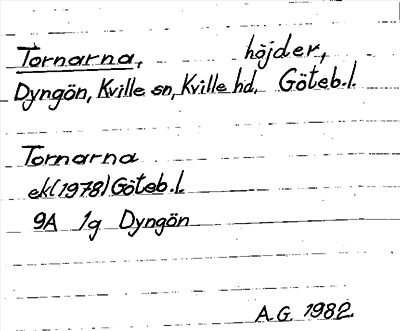 Tornarna, höjder,
Dyngön, Kville sn, Kville hd, Göteb.l.
Tornarna
ek(1978) Göteb.l.
9A 1g Dyngön
A.G. 1982.